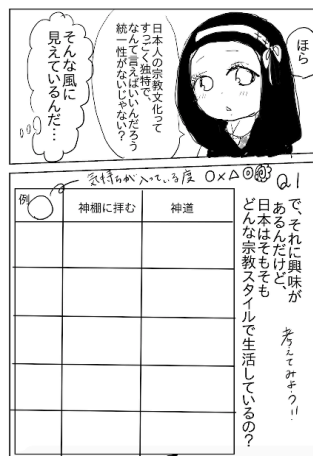 ほら
日本人の宗教文化って
すっごく独特で、
なんて言えばいいんだろう
統一性がないじゃない?
そんな風に
見えているんだ…
Q1
で、それに興味が
あるんだけど、
日本はそもそも
どんな宗教スタイルで生活しているの?
考えてみよう!!
気持ちが入っている度 ○×△◎
例 ○
神棚に拝む
神道